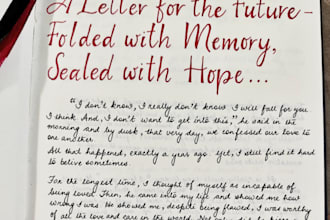 A Letter for the Future -
Folded with Memory,
Sealed with Hope...
"I don't know, I really don't know I will fall for you
I think. And, I don't want to get into this," he said in the
morning and by dusk, that very day, we confessed our love to
one another.
All that happened, exactly a year ago yet, I still find it hard
to belive sometimes.
For the longest time, I thought of myself as incapable of
being loved. Then, he came into my life and showed me how
wrong I was. He showed me, despite being flawed, I was worthy
of all the love and care in the world.